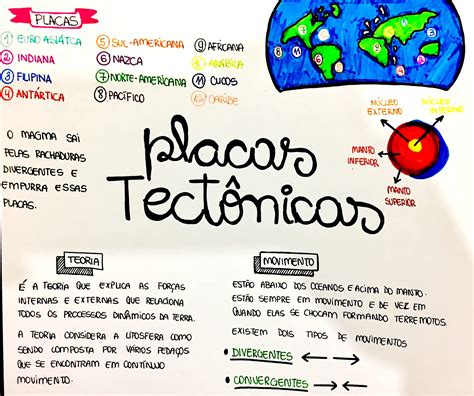 PLACAS
1 EUROASIÁTICA
2 INDIANA
3 FILIPINA
4 ANTÁRTICA
5 SUL-AMERICANA
6 NAZCA
7 NORTE-AMERICANA
8 PACÍFICO
9 AFRICANA
10 ARÁBICA
11 COCOS
12 CARIBE
NÚCLEO EXTERNO
NÚCLEO INTERNO
MANTO INFERIOR
MANTO SUPERIOR
O MAGMA SAI
PELAS RACHADURAS
DIVERGENTES E
EMPURRA ESSAS
PLACAS.
placas
Tectônicas
TEORIA
É A TEORIA QUE EXPLICA AS FORÇAS
INTERNAS E EXTERNAS QUE RELACIONA
TODOS OS PROCESSOS DINÂMICOS DA TERRA.
A TEORIA CONSIDERA A LITOSFERA COMO
SENDO COMPOSTA POR VÁRIOS PEDAÇOS
QUE SE ENCONTRAM EM CONTÍNUO
MOVIMENTO.
MOVIMENTO
ESTÃO ABAIXO DOS OCEANOS E ACIMA DO MANTO.
ESTÃO SEMPRE EM MOVIMENTO E DE VEZ EM
QUANDO ELAS SE CHOCAM FORMANDO TERREMOTOS.
EXISTEM DOIS TIPOS DE MOVIMENTOS
• DIVERGENTES
• CONVERGENTES